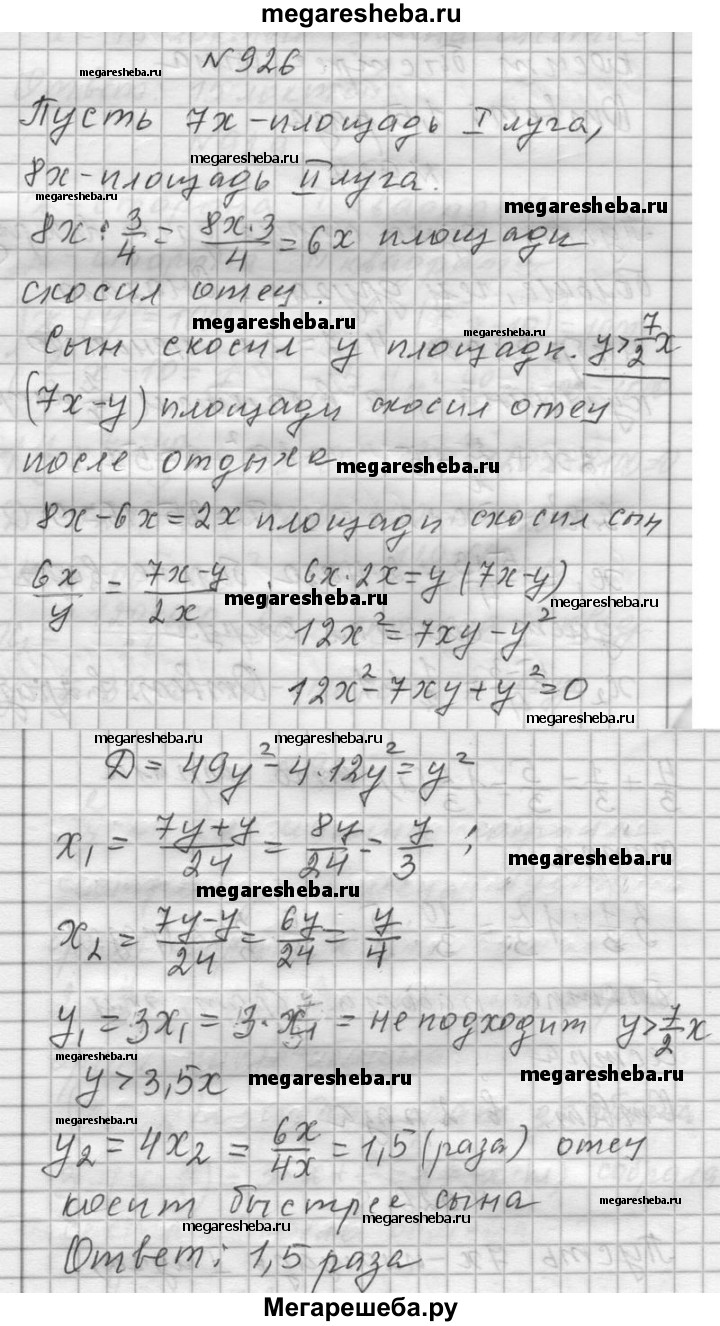 megaresheba.ru
№ 926
megaresheba.ru
Пусть 7x - площадь I луга,
megaresheba.ru
8x - площадь II луга.
megaresheba.ru
megaresheba.ru
8x : 3/4 = 8x·3/4 = 6x площади
скосил отец.
megaresheba.ru
megaresheba.ru
Сын скосил y площади. y > 7/2 x
(7x-y) площади скосил отец
после отдыха
megaresheba.ru
8x - 6x = 2x площади скосил сын
6x/y = 7x-y/2x ; 6x·2x = y(7x-y)
megaresheba.ru
megaresheba.ru
12x² = 7xy - y²
12x² - 7xy + y² = 0
megaresheba.ru
megaresheba.ru
megaresheba.ru
Д = 49y² - 4·12y² = y²
x₁ = 7y+y/24 = 8y/24 = y/3 ;
megaresheba.ru
megaresheba.ru
x₂ = 7y-y/24 = 6y/24 = y/4
y₁ = 3x₁ = не подходит y > 7/2 x
megaresheba.ru
y > 3,5x
megaresheba.ru
megaresheba.ru
megaresheba.ru
y₂ = 4x₂ = 6x/4x = 1,5 (раза) отец
косит быстрее сына
megaresheba.ru
megaresheba.ru
megaresheba.ru
Ответ: 1,5 раза
Мегарешеба.ру